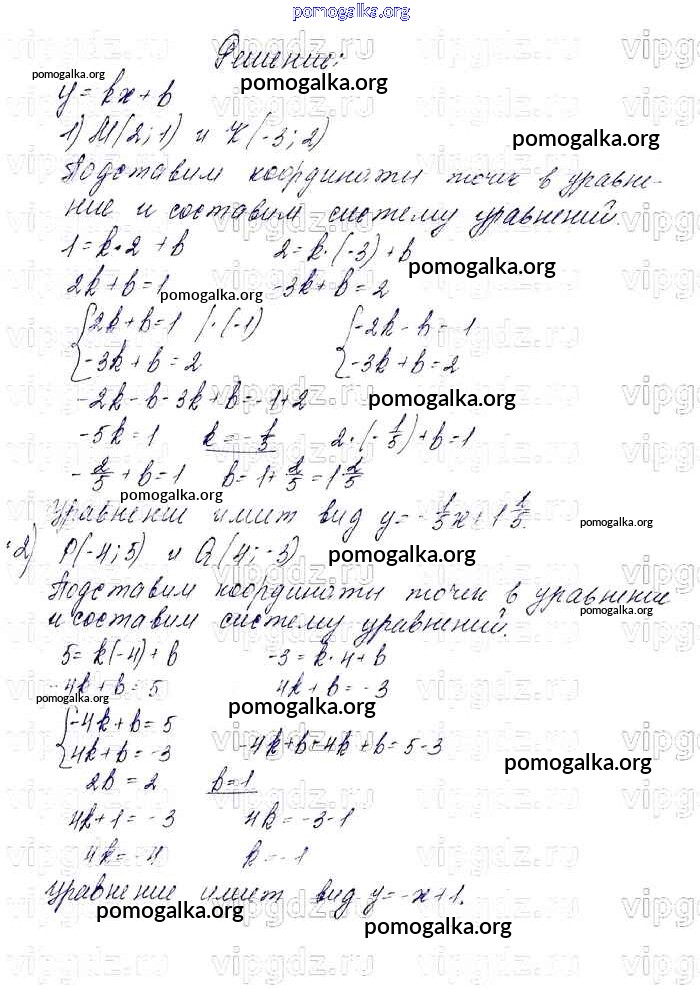 pomogalka.org
Решение:
pomogalka.org
y = kx + b
pomogalka.org
1) М(2; 1) и К(-3; 2)
pomogalka.org
Подставим координаты точек в уравне-
ние и составим систему уравнений.
1 = k·2 + b 2 = k·(-3) + b
pomogalka.org
2k + b = 1 -3k + b = 2
pomogalka.org
{2k + b = 1 |·(-1) {-2k - b = 1
{-3k + b = 2 {-3k + b = 2
-2k - b - 3k + b = -1 + 2
pomogalka.org
-5k = 1 k = -1/5 2·(-1/5) + b = 1
-2/5 + b = 1 b = 1 + 2/5 = 1 2/5
pomogalka.org
Уравнение имеет вид y = -1/5x + 1 1/5.
pomogalka.org
2) P(-4; 5) и Q(4; -3)
pomogalka.org
Подставим координаты точек в уравнение
pomogalka.org
и составим систему уравнений.
5 = k(-4) + b -3 = k·4 + b
-4k + b = 5 4k + b = -3
pomogalka.org
pomogalka.org
{-4k + b = 5
{4k + b = -3 -4k + b + 4k + b = 5 - 3
pomogalka.org
2b = 2 b = 1
4k + 1 = -3 4k = -3 - 1
4k = -4 k = -1
Уравнение имеет вид y = -x + 1.
pomogalka.org
pomogalka.org
vipgdz.ru